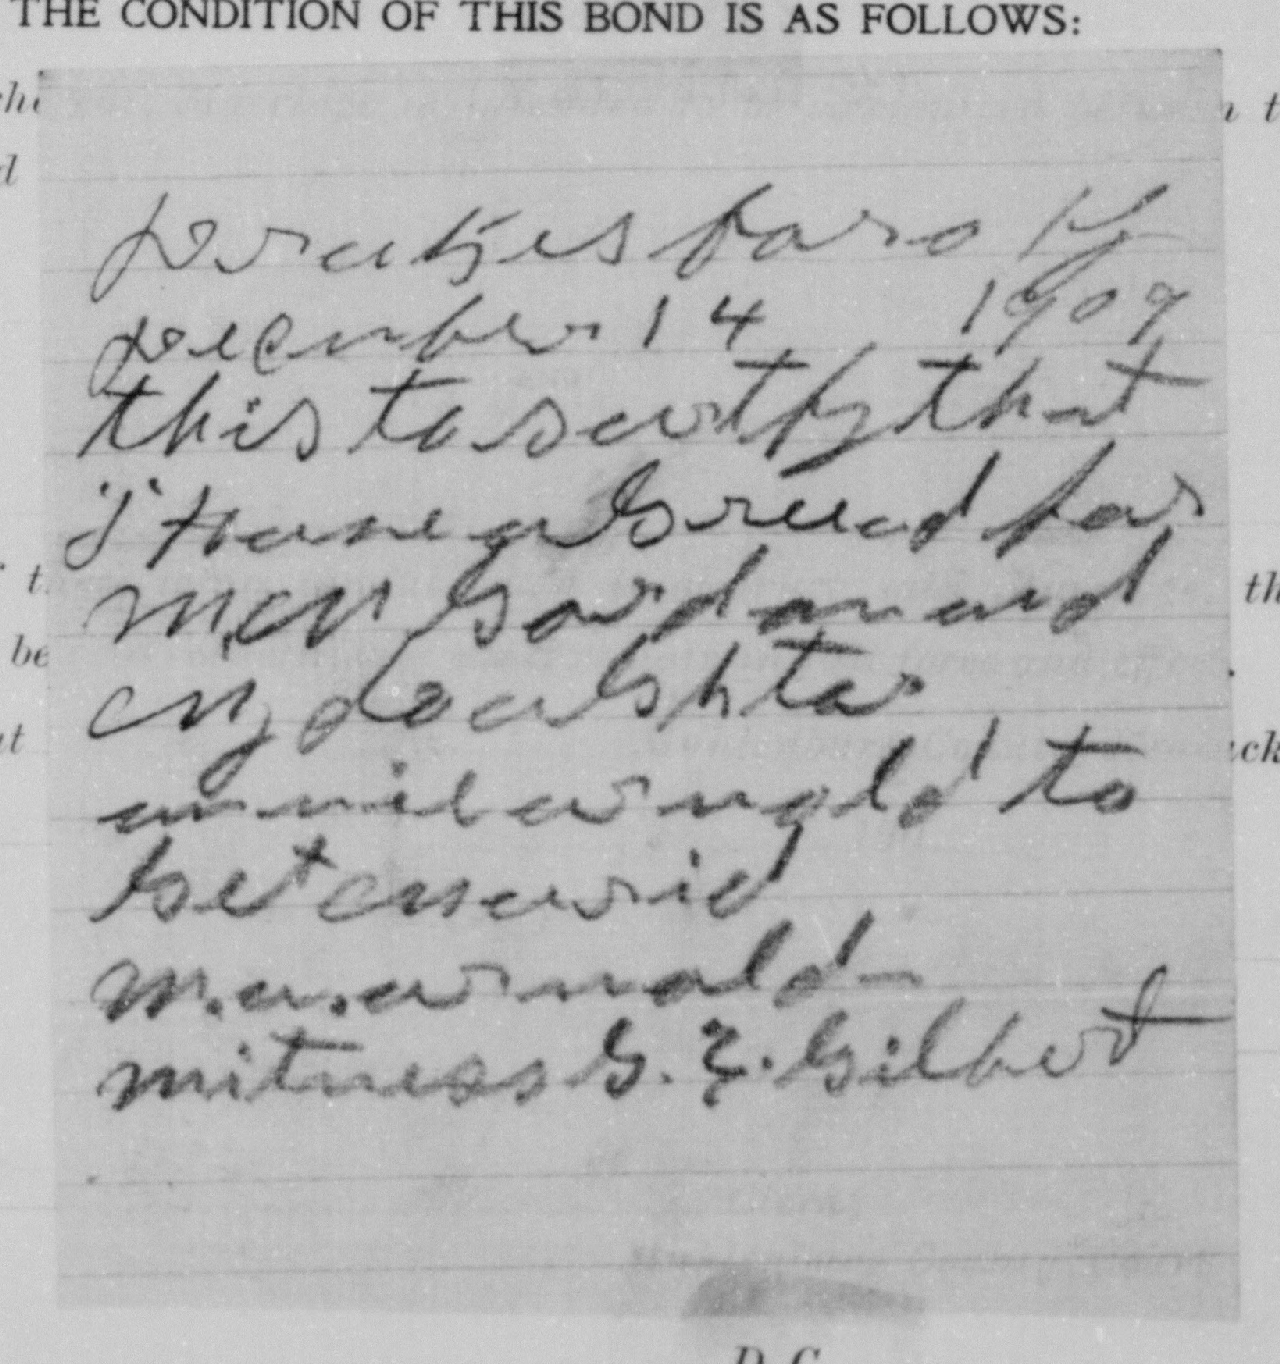 THE CONDITION OF THIS BOND IS AS FOLLOWS:
Drakesboro Ky
December 14 1909
this to sertfy that
I Have agreed for
M,C,M Gordan and
my doaughtar
annie arnold to
get maried
M.a.arnold
Mitness G. Z. Gilbert
D. C.